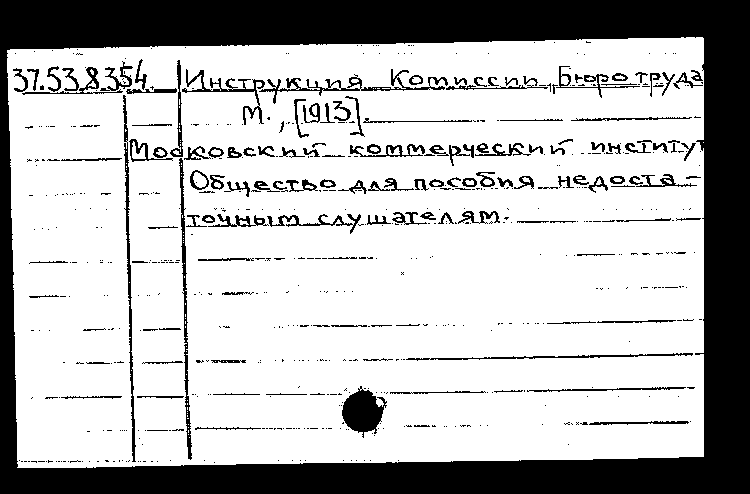 37.53.8.354. Инструкция Комиссии „Бюро труда
М., [1913].
Московский коммерческий институт
Общество для пособия недоста-
точным слушателям.